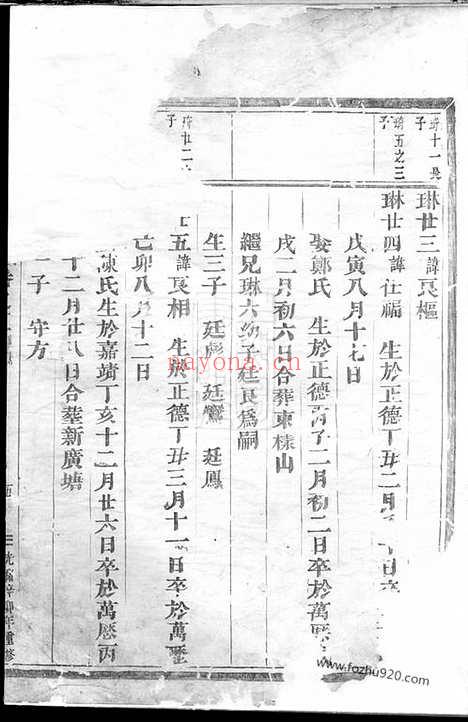 琳十一長
子
琳廿三諱良樞
琳五之三
子
琳廿四諱仕福 生於正德丁丑二月 十日卒
戊寅八月十七日
娶鄭氏 生於正德丙子二月初二日卒於萬歷
戌二月初六日合葬東樣山
繼兄琳六幼子廷良為嗣
生三子 廷彪 廷鸞 廷鳳
廿二
子
五諱良相 生於正德丁丑三月十一日卒於萬歷
己卯八月十二日
陳氏生於嘉靖丁亥十二月廿六日卒於萬歷丙
十二月廿八日合葬新廣塘
一子 守方
光緒辛卯年重修
nayona.cn
www.fozhu920.com